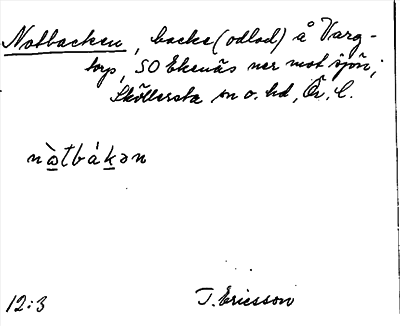 Notbacken, backe (odlad) å Varg-
torp, SO Ekenäs ner mot sjön;
Sköllersta sn o. hd, Ör. l.
nòtbákən
12:3 T. Ericsson